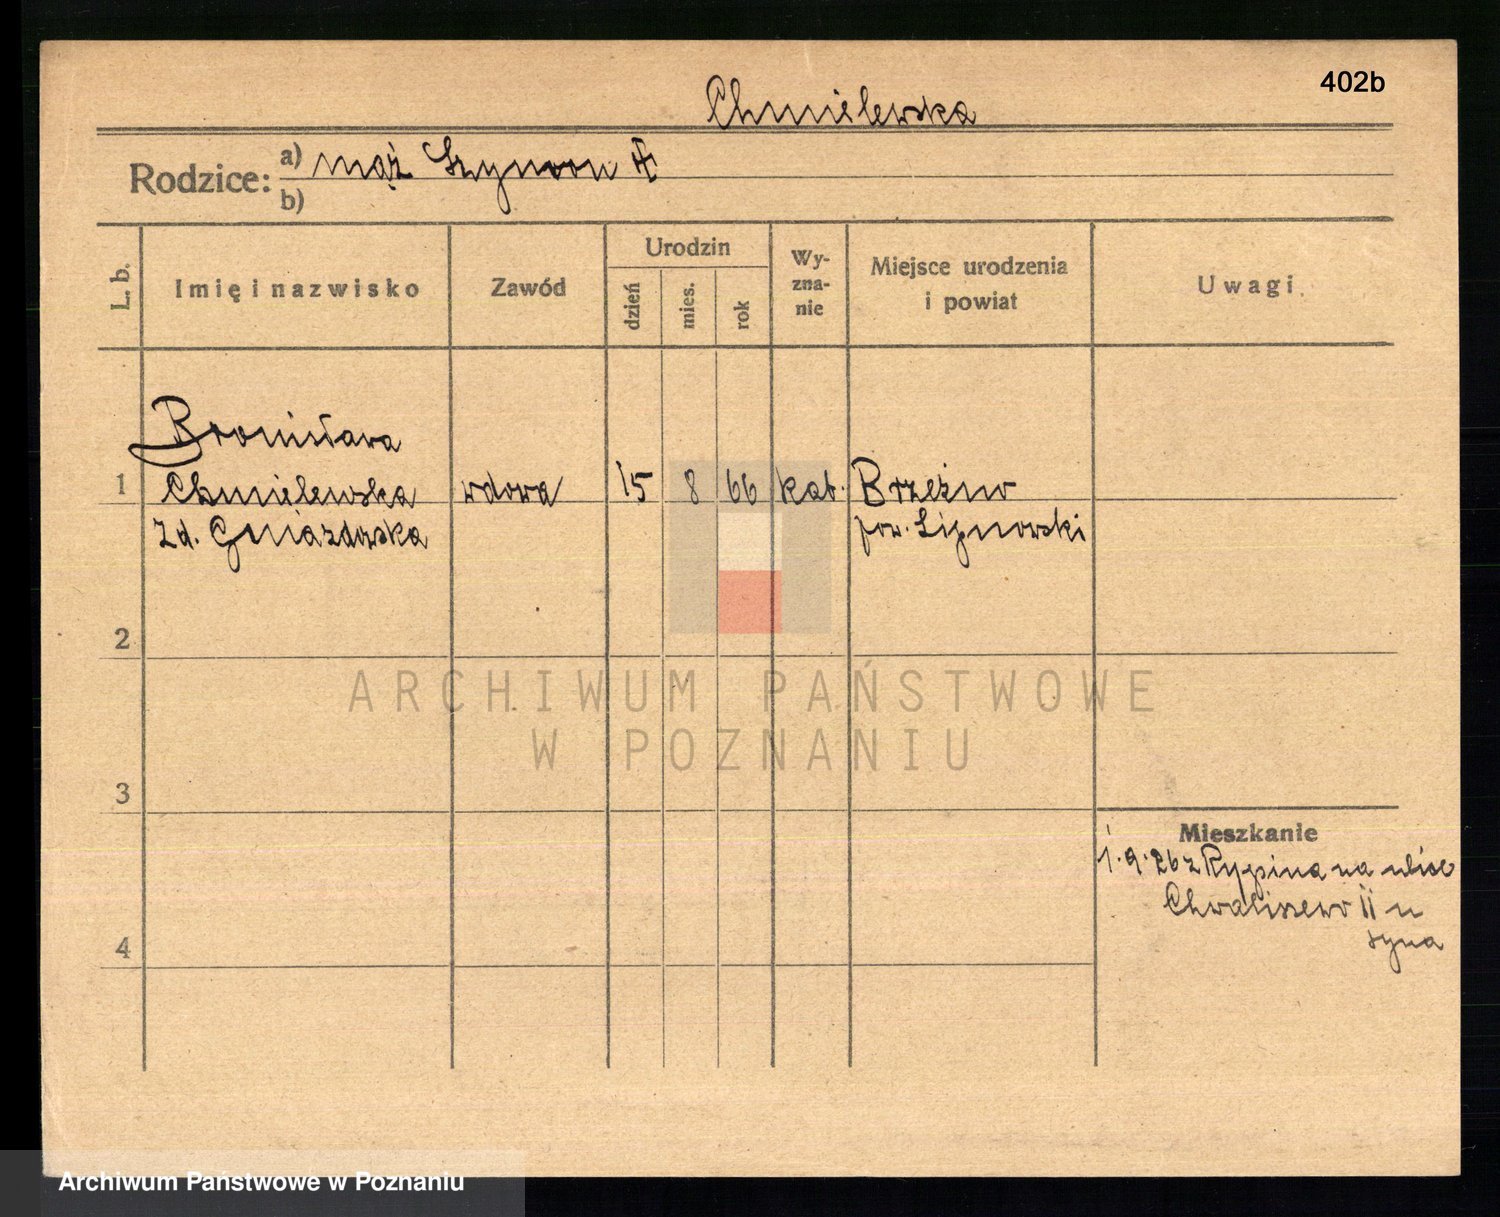 402b
Chmielewska
Rodzice: a) mąż Szymon
b)
L. b.
Imię i nazwisko
Zawód
Urodzin
dzień
mies.
rok
Wy-
zna-
nie
Miejsce urodzenia
i powiat
Uwagi
Bronisława
1 Chmielewska wdowa 15 8 66 kat. Brzeźno
zd. Gniazdowska pow. Lipnowski
2
ARCHIWUM PAŃSTWOWE
W POZNANIU
3
Mieszkanie
1.9.26 z Rypina na ulice
Chwaliszewo 11 u
syna
4
Archiwum Państwowe w Poznaniu